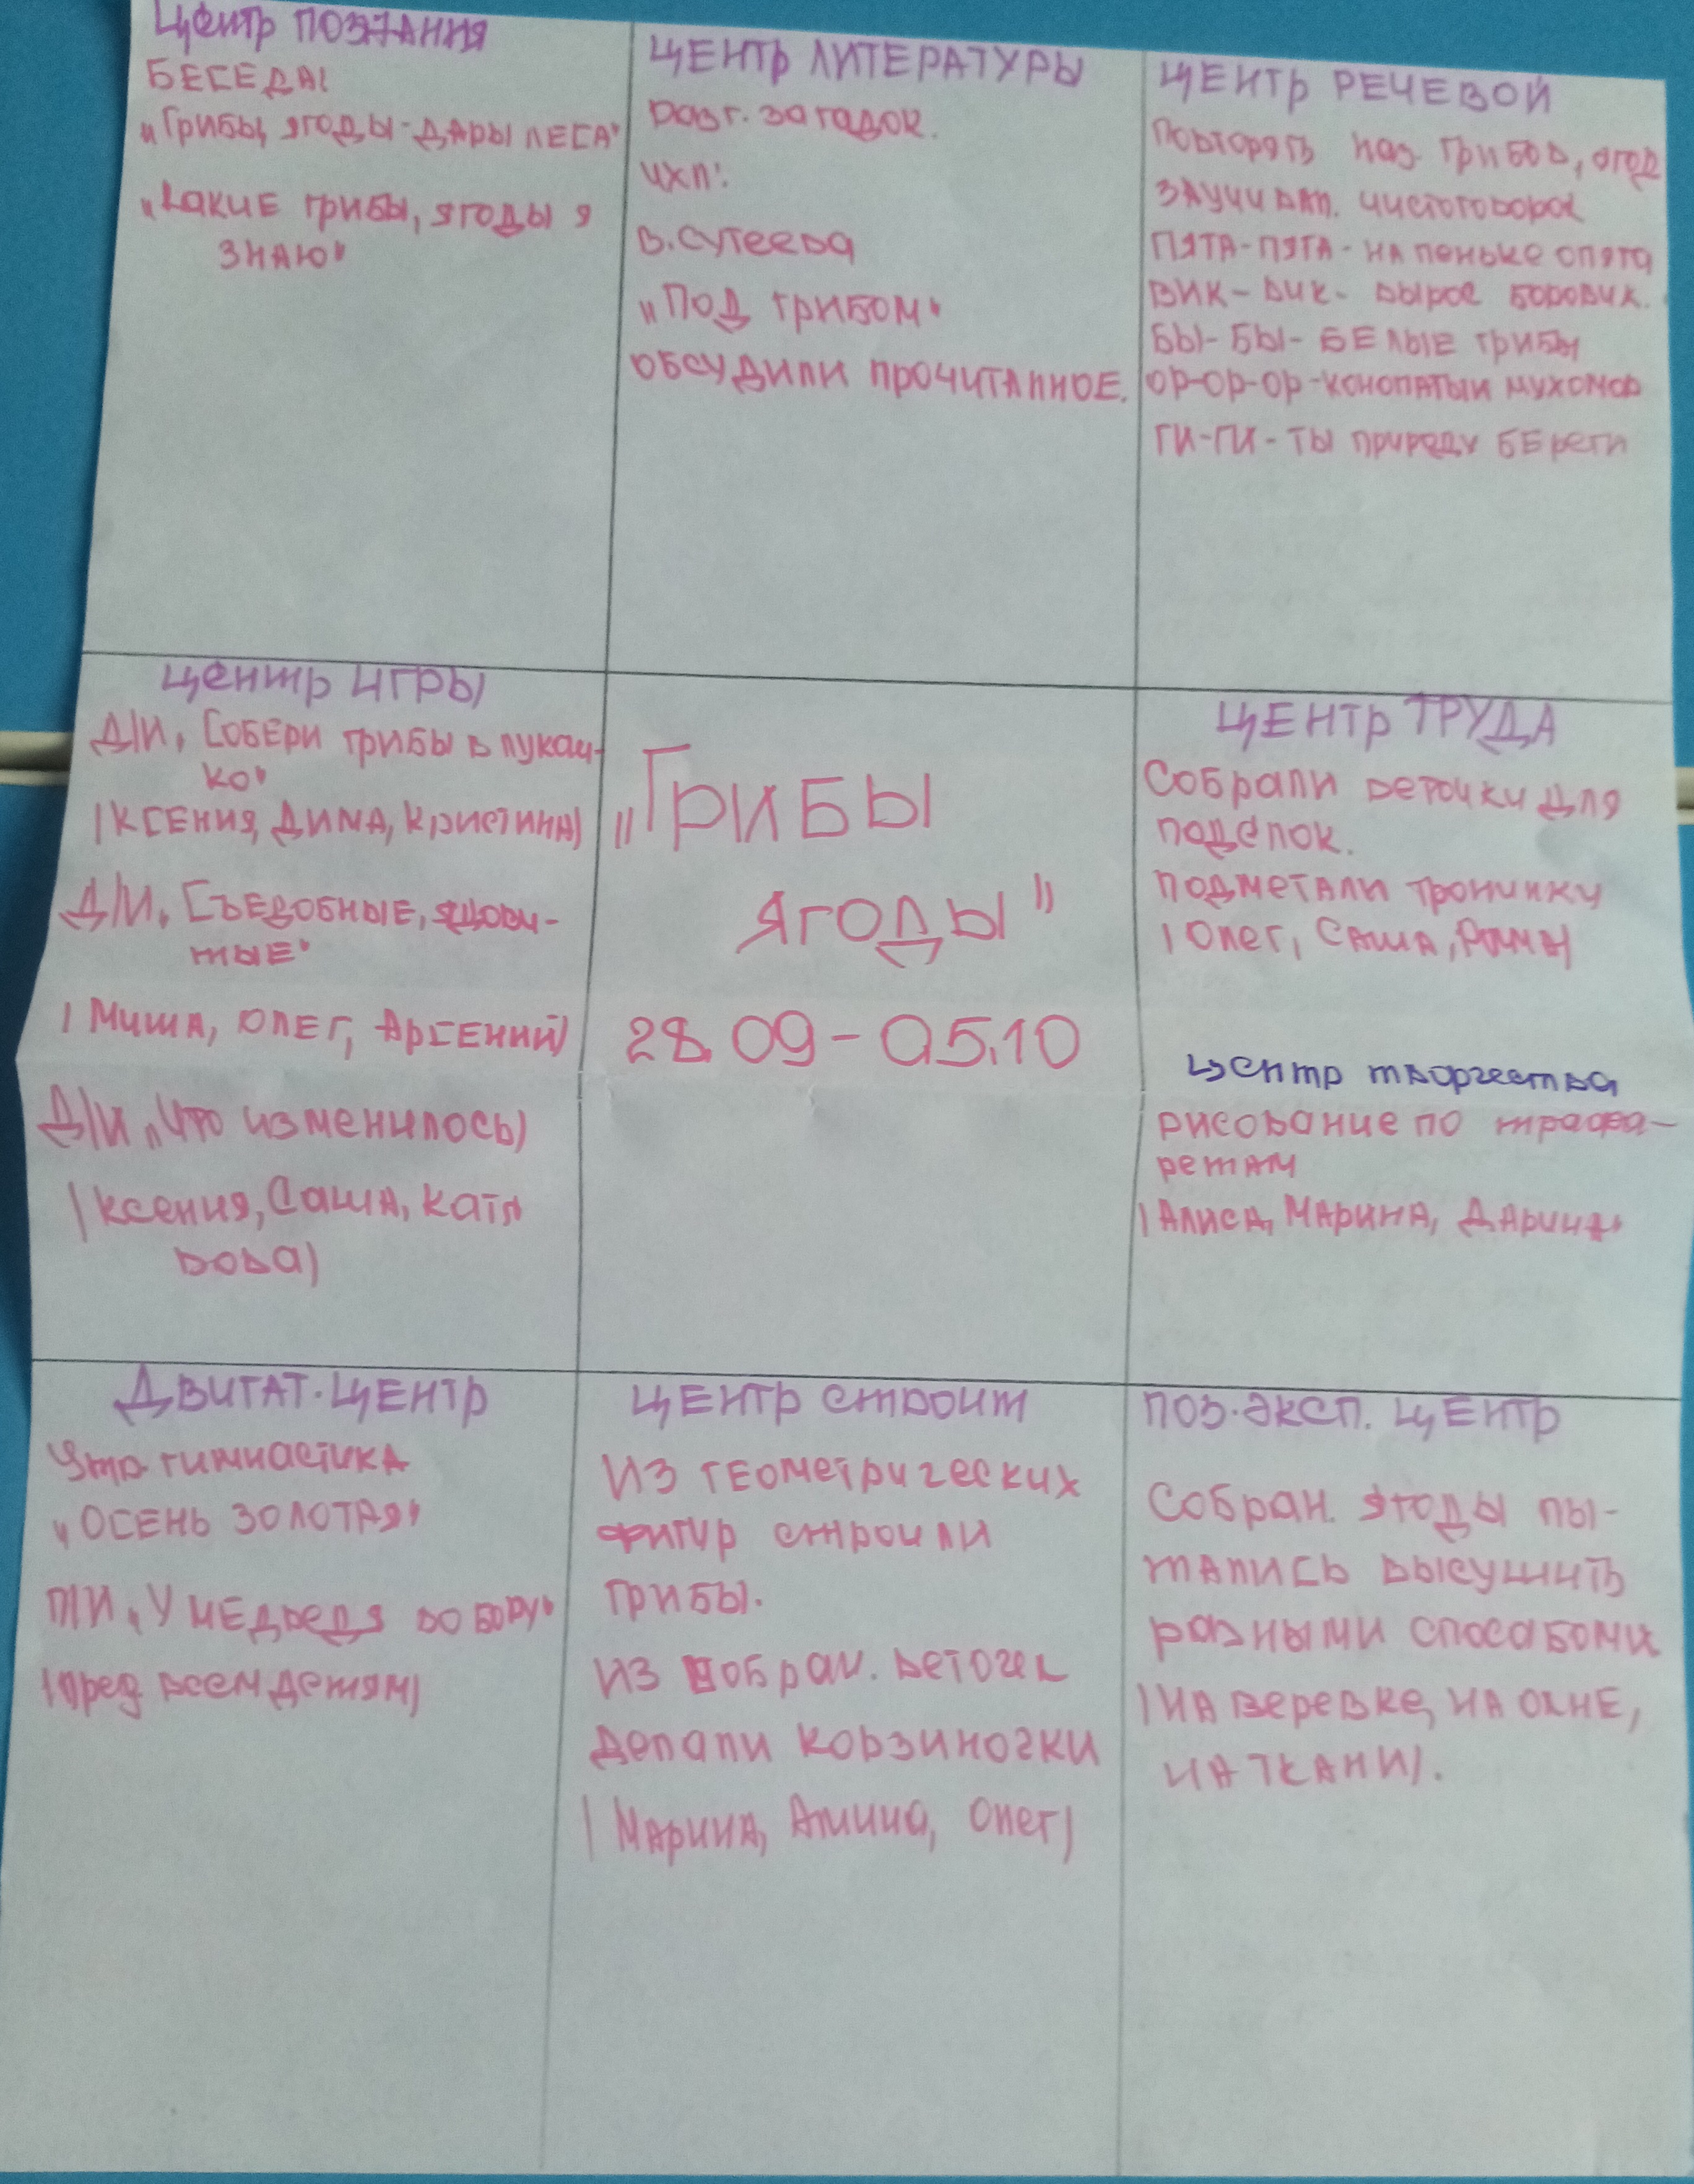 Центр ПОЗНАНИЯ
БЕСЕДА:
„Грибы, ягоды - дары леса"
„Какие грибы, ягоды я
знаю"
ЦЕНТР ЛИТЕРАТУРЫ
разг. загадок.
ЧХЛ:
В. Сутеева
„Под грибом"
обсудили прочитанное.
ЦЕНТР РЕЧЕВОЙ
Повторять наз. грибов, ягод
заучиван. чистоговорок
ПЯТА-ПЯТА-на пеньке опята
ВИК-вик-вырос боровик.
БЫ-БЫ-БЕЛЫЕ грибы
ОР-ОР-ОР-конопатый мухомор
ГИ-ГИ-ты природу береги
Центр ИГРЫ
Д/И „Собери грибы в лукош-
ко"
(Ксения, Дима, Кристина)
Д/И „Съедобные, ядови-
тые"
(Миша, Олег, Арсений)
Д/И „Что изменилось)
(Ксения, Саша, Катя
Вова)
„Грибы
ягоды"
28.09-05.10
ЦЕНТР ТРУДА
Собрали веточки для
поделок.
Подметали тропинку
(Олег, Саша, Рома)
Центр творчества
рисование по трафа-
ретам
(Алиса, Марина, Дарина)
ДВИГАТ. ЦЕНТР
Утр. гимнастика
„ОСЕНЬ ЗОЛОТАЯ"
П/И „У медведя во бору"
(пред всем детям)
ЦЕНТР строит
Из геометрических
фигур строили
грибы.
Из собран. веточек
делали корзиночки
(Марина, Амина, Олег)
ПОЗ.-ЭКСП. ЦЕНТР
Собран. ягоды пы-
тались высушить
разными способами
(на веревке, на окне,
на ткани).